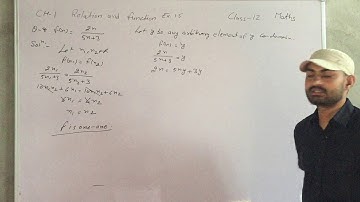 CH-1 Relation and function Ex. 1.5 Class-12 Maths
Q-4 f(x) = 2x / 5x+3
Solⁿ - Let x₁, x₂ ∈ R
f(x₁) = f(x₂)
2x₁ / 5x₁+3 = 2x₂ / 5x₂+3
10x₁x₂ + 6x₁ = 10x₁x₂ + 6x₂
6x₁ = 6x₂
x₁ = x₂
f is one-one.
Let y be any arbitrary element of y Co-domain
f(x) = y
2x / 5x+3 = y
2x = 5xy + 3y